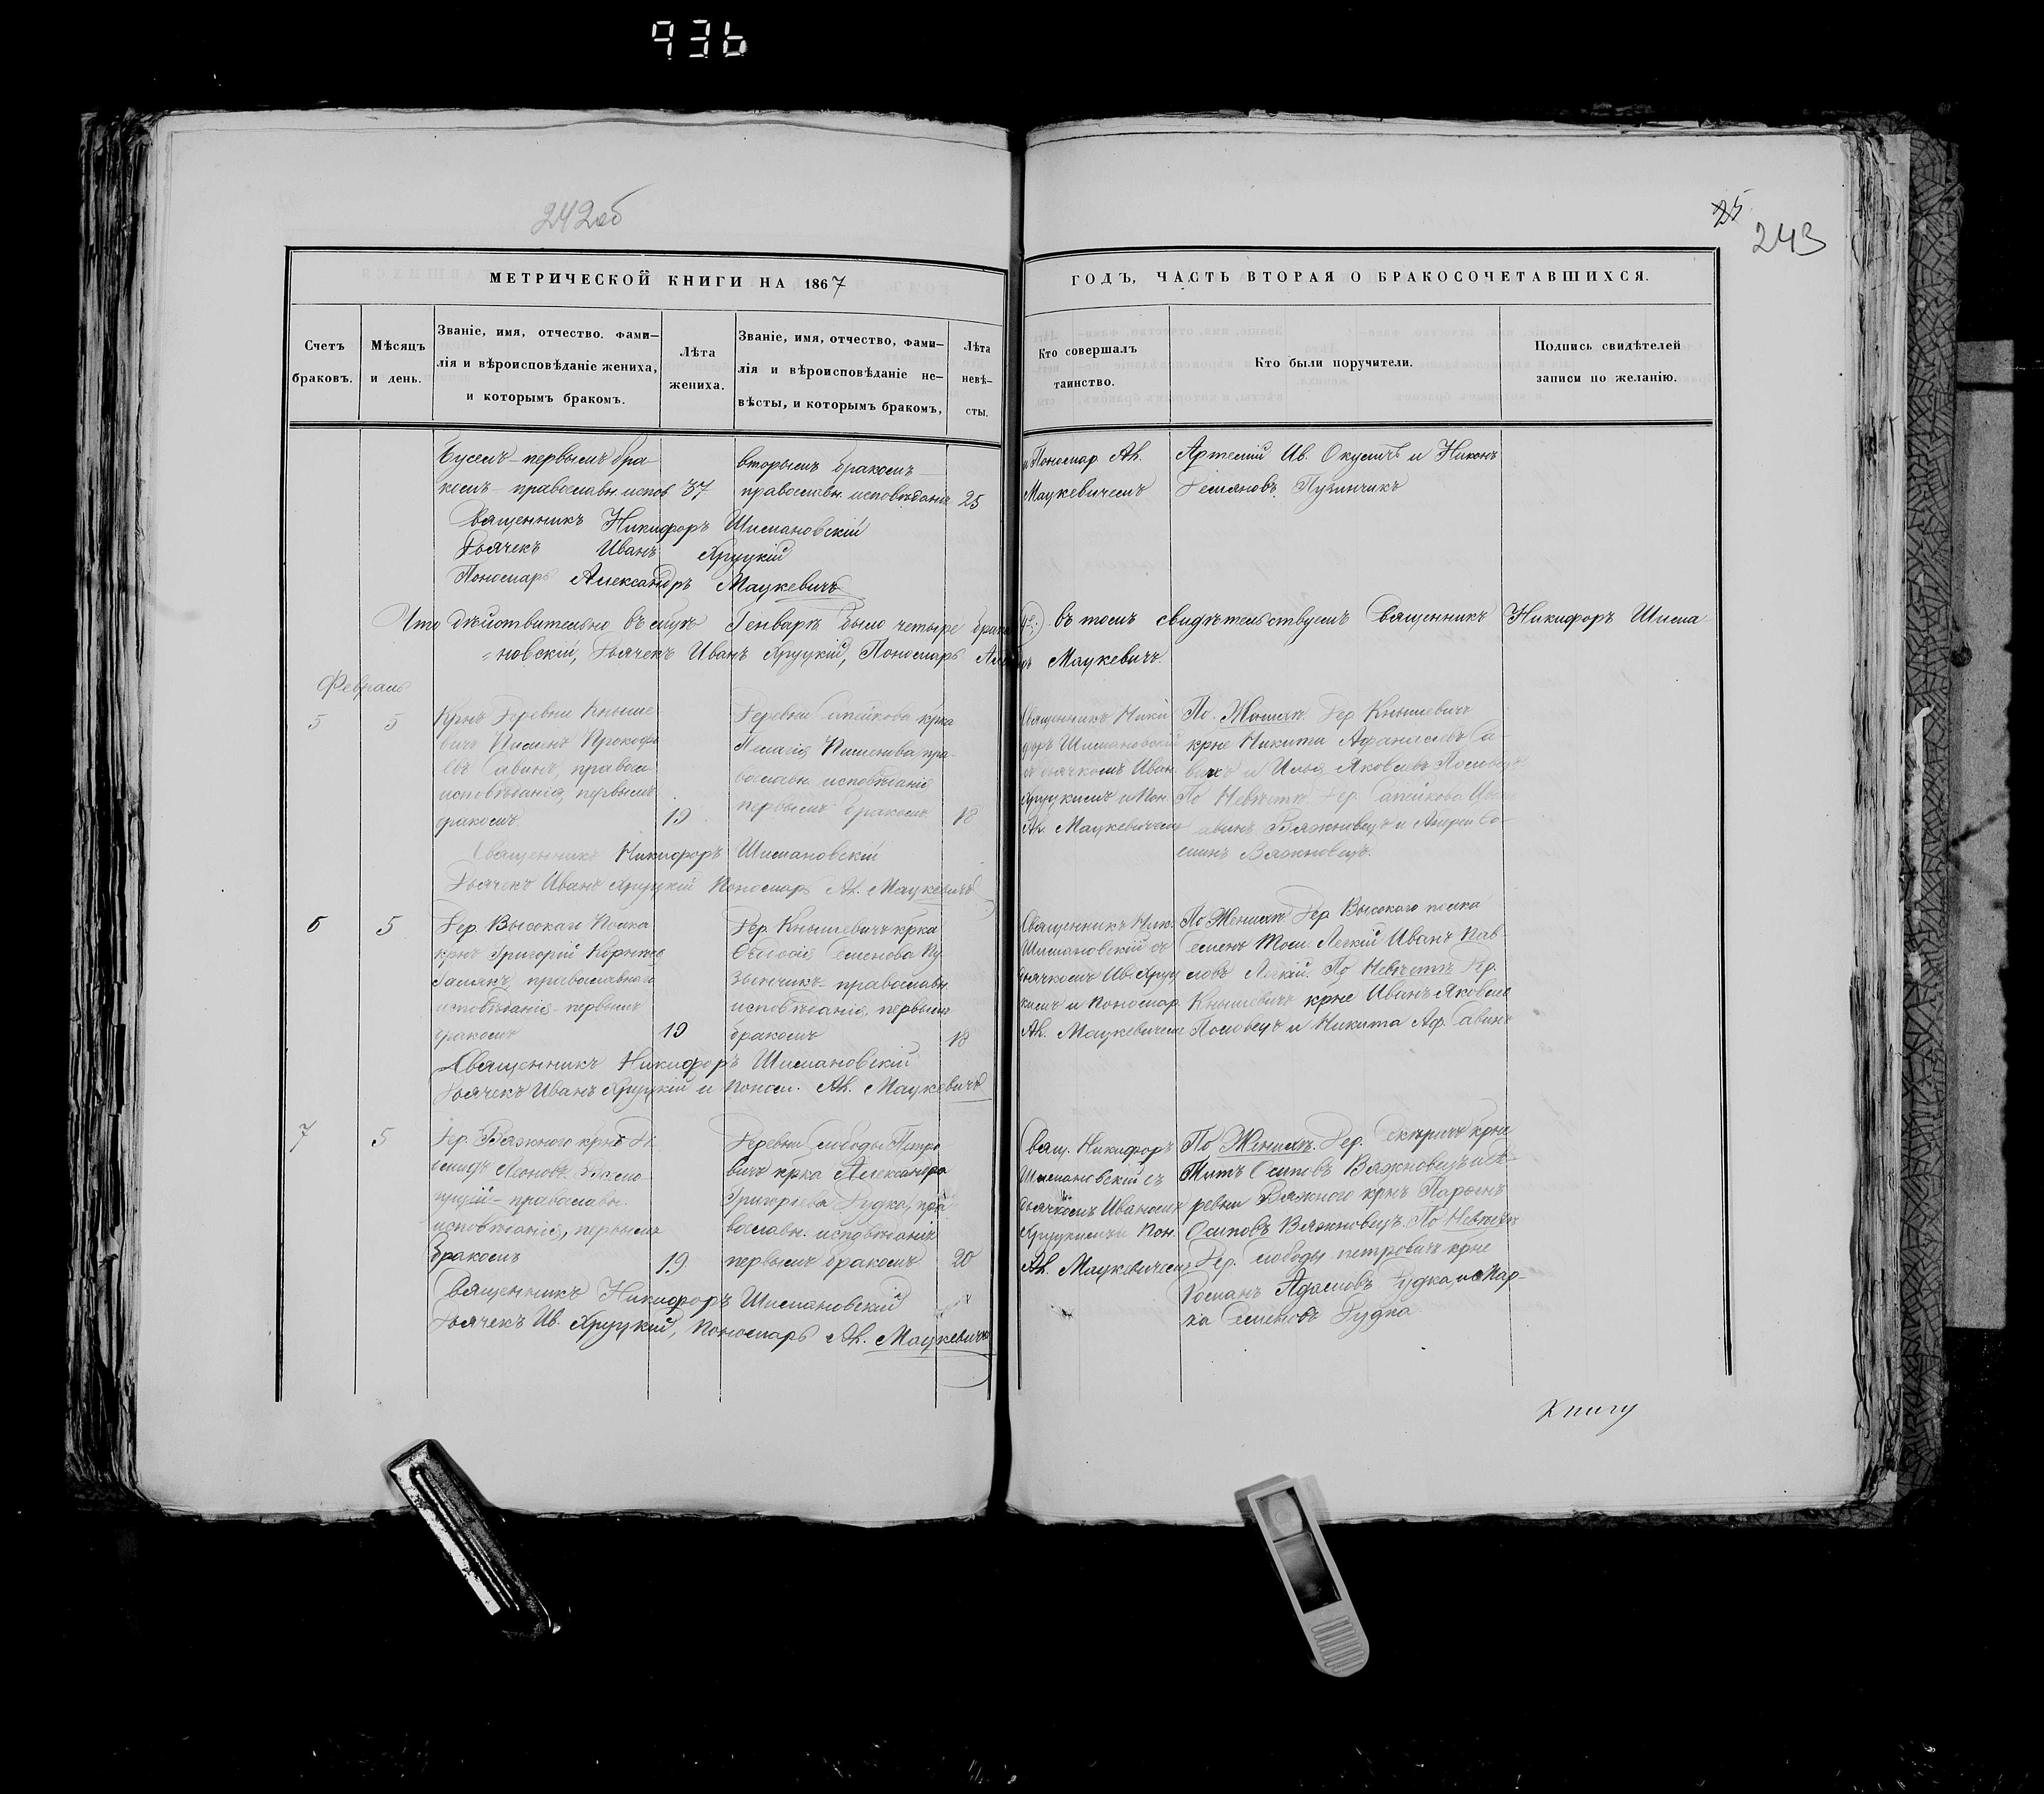 936
242об
25
243
МЕТРИЧЕСКОЙ КНИГИ НА 1867
ГОДЪ, ЧАСТЬ ВТОРАЯ О БРАКОСОЧЕТАВШИХСЯ.
Счетъ
браковъ.
Мѣсяцъ
и день.
Званіе, имя, отчество. фами–
лія и вѣроисповѣданіе жениха,
и которымъ бракомъ.
Лѣта
жениха.
Званіе, имя, отчество, фами–
лія и вѣроисповѣданіе не–
вѣсты, и которымъ бракомъ,
Лѣта
невѣ–
сты.
Кто совершалъ
таинство.
Кто были поручители.
Подпись свидѣтелей
записи по желанію.
первымъ бра
комъ – православн. испов 37
вторымъ бракомъ
православн. исповѣданія 25
и Пономар. Ал.
Мацкевичемъ
Артемій Ив. и Никонъ
Демяновъ Пузинчикъ
Священникъ Никифоръ Шимановскій
Дьячекъ Иванъ Хруцкій
Пономарь Александръ Мацкевичъ
Что дѣйствительно въ Генварѣ было четыре брака въ томъ свидѣтельствуемъ Священникъ Никифоръ Шима
=новскій, Дьячекъ Иванъ Хруцкій, Пономарь Мацкевичъ.
Февраль
5
5
Крнъ Деревни Кныше
вичъ Пименъ Прокофь
евъ Савинъ, правосл.
исповѣданія, первымъ
бракомъ
19
Деревни Сапейкова крка
Пелагія Пименова пра-
вославн. исповѣданія
первымъ бракомъ
18
Священникъ Ники
форъ Шимановскій
съ дьячкомъ Иван.
Хруцкимъ и Пон.
Ал. Мацкевичемъ
По Женихѣ. Дер. Кнышевичъ
крне Никита Афанасьевъ Са-
винъ и Илья Яковлевъ Половецъ
По Невѣстѣ Дер. Сапейкова
Вяжновецъ и Андрей
Вяжновецъ.
Священникъ Никифоръ Шимановскій
Дьячекъ Иванъ Хруцкій Пономарь Ал. Мацкевичъ
6
5
Дер. Высокаго Полка
крнъ Григорій
православнаго
исповѣданія – первымъ
бракомъ
19
Дер. Кнышевичъ крка
Семенова Пу
зынчикъ – православн.
исповѣданія, первымъ
бракомъ
18
Священникъ Ник.
Шимановскій съ
дьячкомъ Ив. Хруц
кимъ и Пономар.
Ал. Мацкевичемъ
По Женихѣ. Дер. Высокаго полка
Семенъ Легкій Иванъ Пав
ловъ Легкій. По Невѣстѣ Дер.
Кнышевичъ крне Иванъ Яковлев
Половецъ и Никита Аф. Савинъ
Священникъ Никифоръ Шимановскій
Дьячекъ Иванъ Хруцкій и Поном. Ал. Мацкевичъ
7
5
Дер. Вяжного крнъ
Леоновъ
православн.
исповѣданія, первымъ
бракомъ
19
Деревни Слободы Петро
вичъ крка Александра
Григорьева Дудка, пра
вославн. исповѣданія
первымъ бракомъ
20
Свящ. Никифоръ
Шимановскій съ
дьячкомъ Иваномъ
Хруцкимъ и Пон.
Ал. Мацкевичемъ
По Женихѣ. Дер. крне
Титъ Осиповъ Вяжновецъ и де-
ревни Вяжного крнъ Парфенъ
Осиповъ Вяжновецъ. По Невѣстѣ
Дер. Слободы петровичъ крне
Романъ Адамовъ Дудка, и Мар-
ка Семеновъ Дудка
Священникъ Никифоръ Шимановскій
Дьячекъ Ив. Хруцкій, Пономарь Ал. Мацкевичъ
Книгу